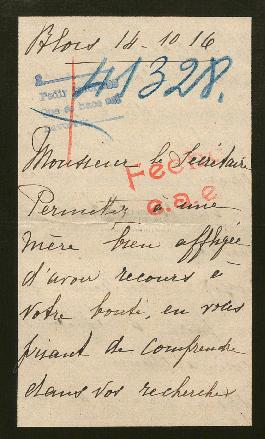 Blois 14-10-16
41328.
Monsieur le Secrétaire
Fecho
Permettez à une
c.a.e
mère bien affligée
d'avoir recours à
votre bonté, en vous
priant de comprendre
dans vos recherches